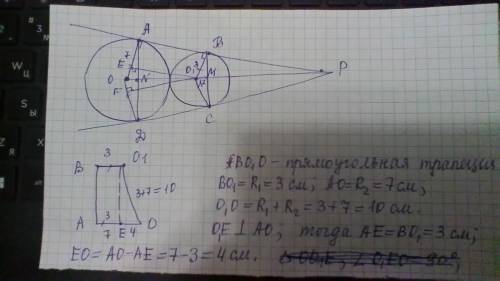 A
B
7
E
O
N
O1
3
M
P
F
D
C
3
B
O1
3+7=10
A
3
7
E
4
O
ABO1O - прямоугольная трапеция
BO1=R1=3 см; AO=R2=7см;
O1O=R1+R2=3+7=10 см.
O1E⊥AO; тогда AE=BO1=3 см;
EO=AO-AE=7-3=4 см.